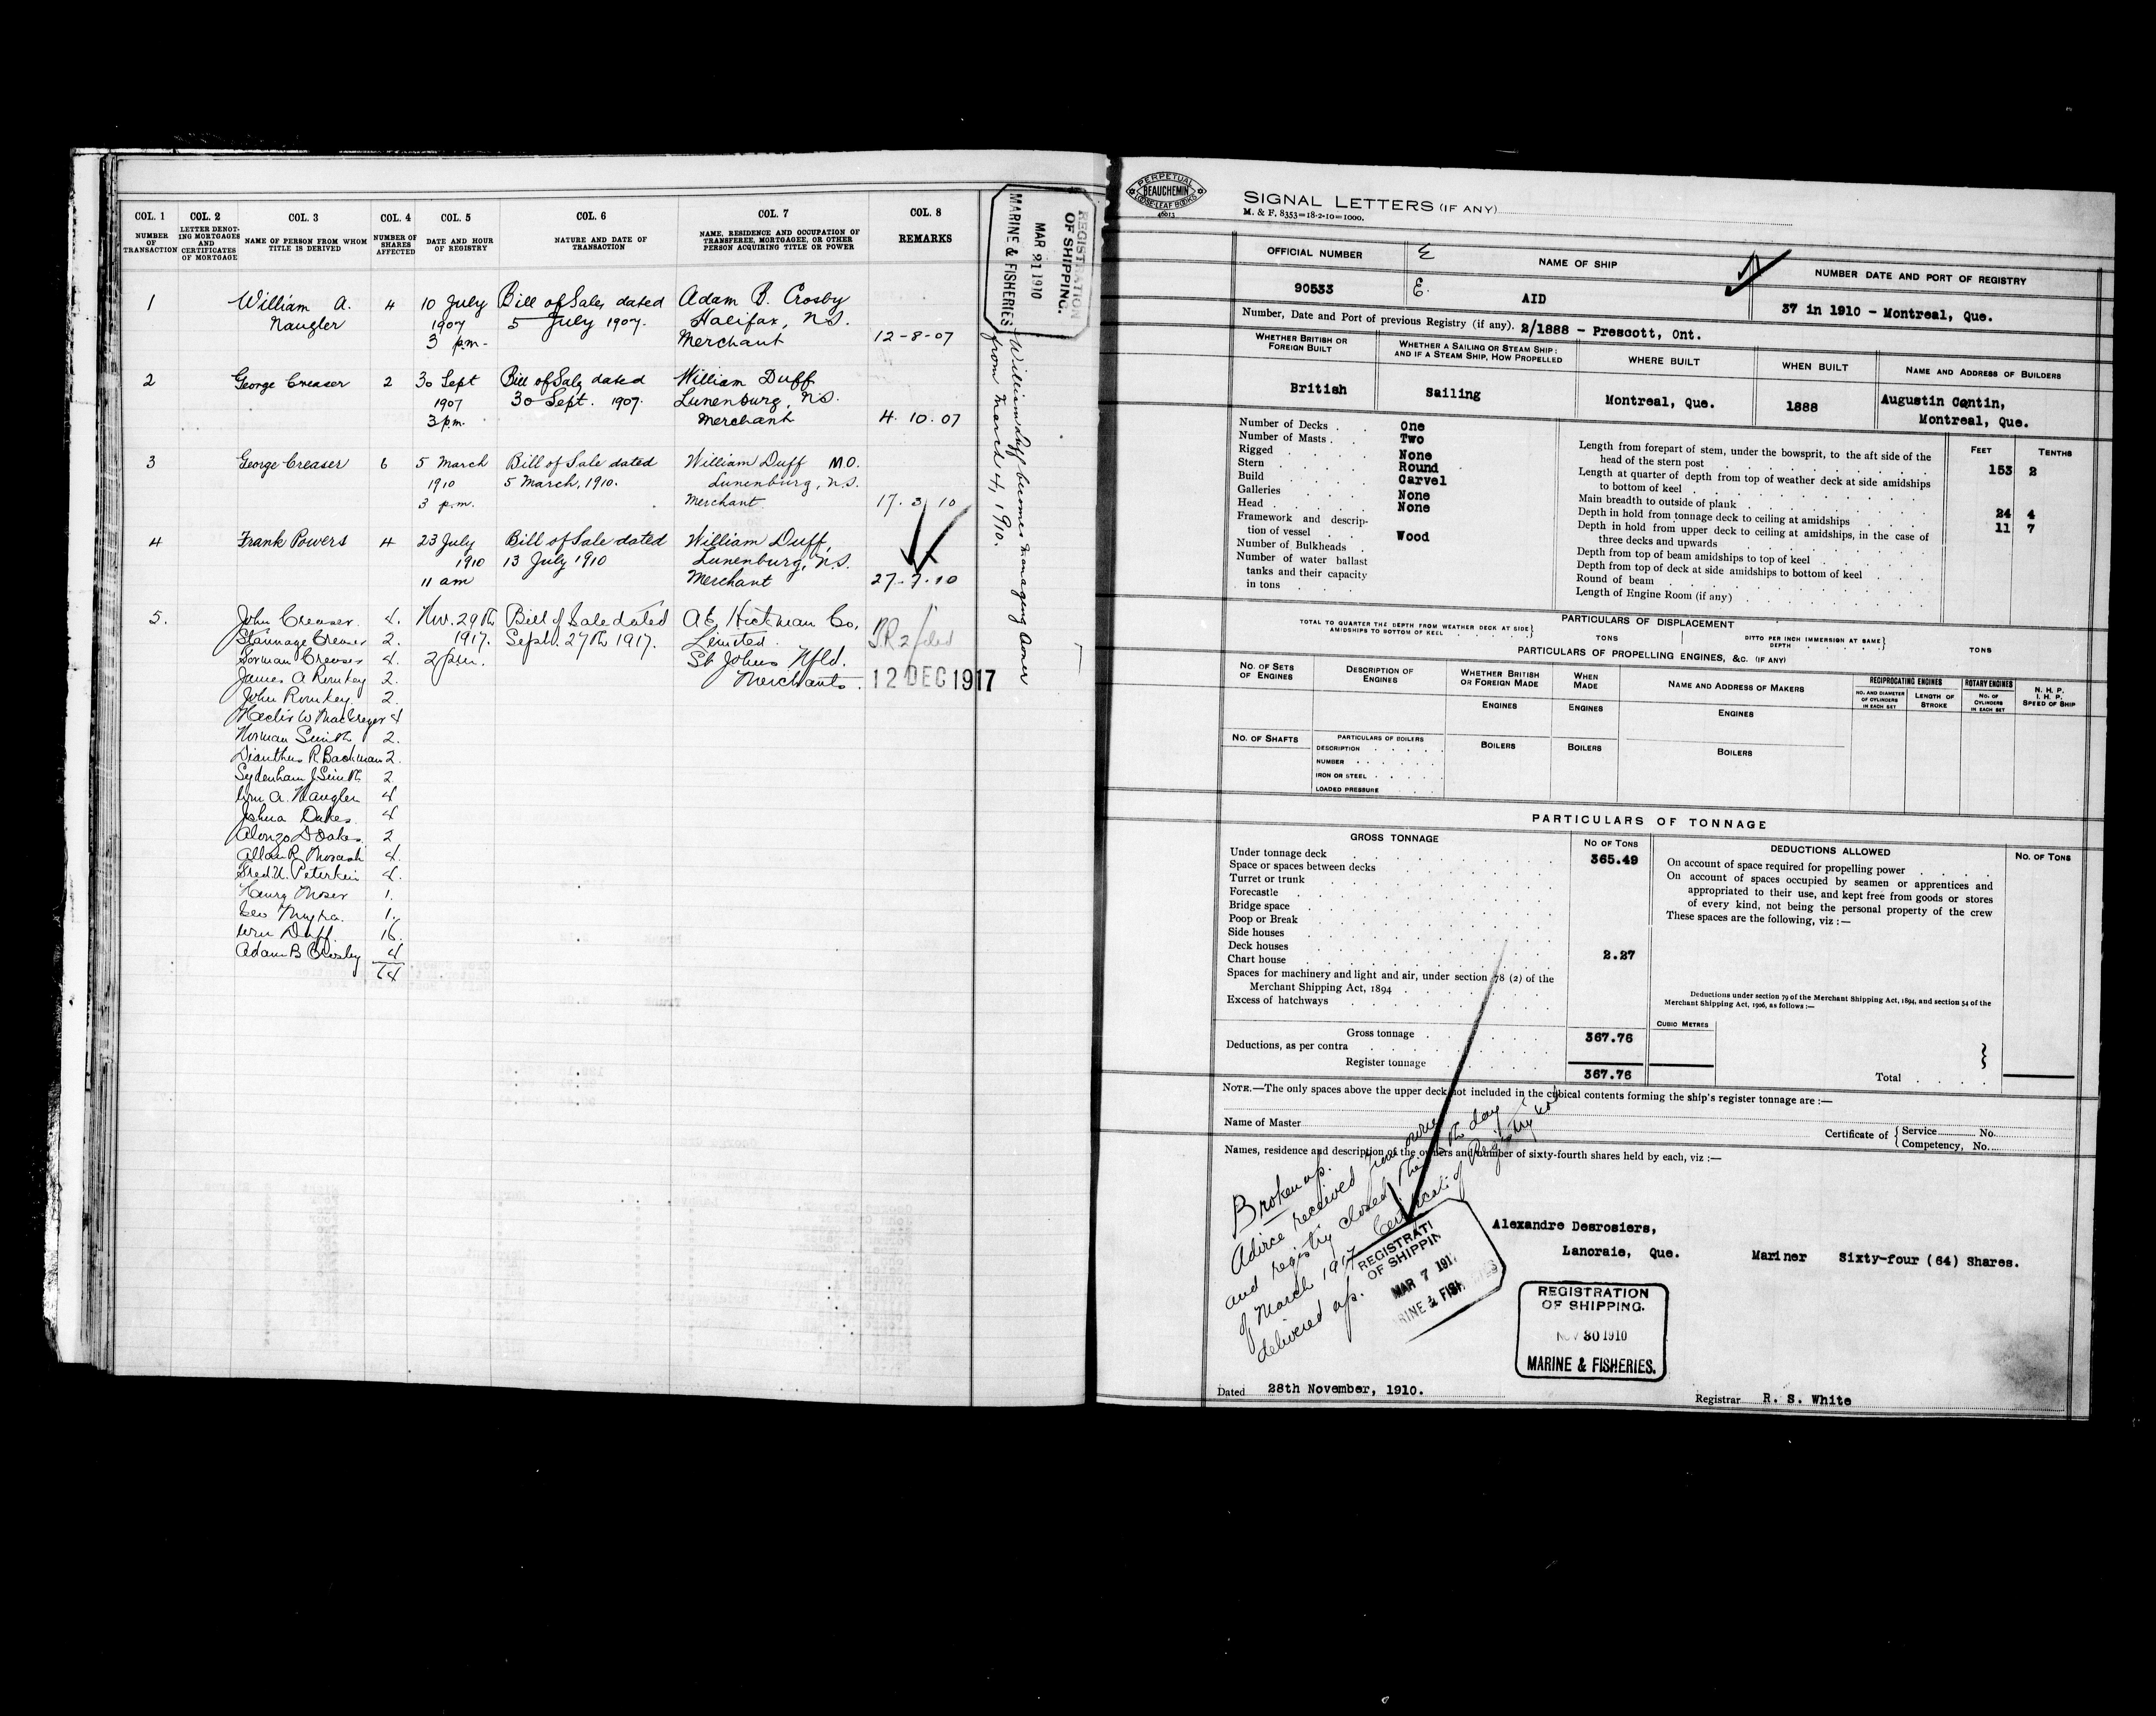 COL. 1
NUMBER OF TRANSACTION
COL. 2
LETTER DENOTING MORTGAGES AND CERTIFICATES OF MORTGAGE
COL. 3
NAME OF PERSON FROM WHOM TITLE IS DERIVED
COL. 4
NUMBER OF SHARES AFFECTED
COL. 5
DATE AND HOUR OF REGISTRY
COL. 6
NATURE AND DATE OF TRANSACTION
COL. 7
NAME, RESIDENCE AND OCCUPATION OF TRANSFEREE, MORTGAGEE, OR OTHER PERSON ACQUIRING TITLE OR POWER
COL. 8
REMARKS
1 William A. 4 10 July Bill of Sale, dated Adam B. Crosby
Naugler 1907 5 July 1907. Halifax, N.S.
3 p.m. Merchant 12-8-07
2 George Creaser 2 30 Sept Bill of Sale dated William Duff
1907 30 Sept. 1907. Lunenburg, N.S.
3 p.m. Merchant 4.10.07
3 George Creaser 6 5 March Bill of Sale dated William Duff M.O.
1910 5 March, 1910. Lunenburg, N.S.
3 p.m. Merchant 17.3.10
4 Frank Powers 4 23 July Bill of Sale dated William Duff,
1910 13 July 1910 Lunenburg, N.S.
11 am Merchant 27-7-10
5. John Creaser. 4. Nov. 29th Bill of Sale dated A E Hickman Co,
Stannage Creaser 2. 1917. Sept. 27th 1917. Limited.
Gorman Creaser 4. 2 p.m. St Johns Nfld.
James A Romkey 2. Merchants. 12 DEC 1917
John Romkey 2.
Hector W MacGregor 4
Norman Smith 2.
Dianthus R Bachman 2.
Sydenham J Smith 2.
Wm A. Naugler 4
Joshua Oakes 4
Alonzo D Oakes. 2
Allan R 4.
Fred. U. Peterkin 4.
Henry Moser 1.
Geo 1.
Wm Duff 16.
Adam B Crosby 4
64
REGISTRATION
OF SHIPPING.
MAR 21 1910
MARINE & FISHERIES
William Duff becomes managing owner
from March 4, 1910.
PERPETUAL
BEAUCHEMIN
LOOSE-LEAF BOOKS
SIGNAL LETTERS (IF ANY)
M. & F. 8353=18-2-10=1000.
OFFICIAL NUMBER
90533
NAME OF SHIP
AID
NUMBER DATE AND PORT OF REGISTRY
37 in 1910 - Montreal, Que.
Number, Date and Port of previous Registry (if any). 2/1888 - Prescott, Ont.
WHETHER BRITISH OR FOREIGN BUILT
WHETHER A SAILING OR STEAM SHIP: AND IF A STEAM SHIP, HOW PROPELLED
WHERE BUILT
WHEN BUILT
NAME AND ADDRESS OF BUILDERS
British
Sailing
Montreal, Que.
1888
Augustin Cantin,
Montreal, Que.
Number of Decks . . One
Number of Masts . . Two
Rigged . . . None
Stern . . . Round
Build . . . Carvel
Galleries . . . None
Head . . . None
Framework and description of vessel . . Wood
Number of Bulkheads .
Number of water ballast tanks and their capacity in tons
FEET TENTHS
Length from forepart of stem, under the bowsprit, to the aft side of the head of the stern post 153 2
Length at quarter of depth from top of weather deck at side amidships to bottom of keel
Main breadth to outside of plank 24 4
Depth in hold from tonnage deck to ceiling at amidships 11 7
Depth in hold from upper deck to ceiling at amidships, in the case of three decks and upwards
Depth from top of beam amidships to top of keel
Depth from top of deck at side amidships to bottom of keel
Round of beam
Length of Engine Room (if any)
PARTICULARS OF DISPLACEMENT
TOTAL TO QUARTER THE DEPTH FROM WEATHER DECK AT SIDE AMIDSHIPS TO BOTTOM OF KEEL TONS
DITTO PER INCH IMMERSION AT SAME DEPTH TONS
PARTICULARS OF PROPELLING ENGINES, &C. (IF ANY)
NO. OF SETS OF ENGINES
DESCRIPTION OF ENGINES
WHETHER BRITISH OR FOREIGN MADE
WHEN MADE
NAME AND ADDRESS OF MAKERS
RECIPROCATING ENGINES
NO. AND DIAMETER OF CYLINDERS IN EACH SET
LENGTH OF STROKE
ROTARY ENGINES
NO. OF CYLINDERS IN EACH SET
N. H. P.
I. H. P.
SPEED OF SHIP
ENGINES
ENGINES
ENGINES
NO. OF SHAFTS
PARTICULARS OF BOILERS
DESCRIPTION
NUMBER
IRON OR STEEL
LOADED PRESSURE
BOILERS
BOILERS
BOILERS
PARTICULARS OF TONNAGE
GROSS TONNAGE
NO OF TONS
Under tonnage deck 365.49
Space or spaces between decks
Turret or trunk
Forecastle
Bridge space
Poop or Break
Side houses
Deck houses 2.27
Chart house
Spaces for machinery and light and air, under section 78 (2) of the
Merchant Shipping Act, 1894
Excess of hatchways
Gross tonnage 367.76
Deductions, as per contra
Register tonnage 367.76
DEDUCTIONS ALLOWED
NO. OF TONS
On account of space required for propelling power
On account of spaces occupied by seamen or apprentices and
appropriated to their use, and kept free from goods or stores
of every kind, not being the personal property of the crew
These spaces are the following, viz :—
Deductions under section 79 of the Merchant Shipping Act, 1894, and section 54 of the
Merchant Shipping Act, 1906, as follows :—
CUBIC METRES
Total
NOTE.—The only spaces above the upper deck not included in the cubical contents forming the ship's register tonnage are :—
Name of Master
Certificate of { Service No.
Competency, No.
Names, residence and description of the owners and number of sixty-fourth shares held by each, viz :—
Broken up.
Advice received from owner
and registry closed this 6th day
of March 1917 Certificate of Registry not
delivered up.
REGISTRATI
OF SHIPPIN
MAR 7 191
RINE & FISH
Alexandre Desrosiers,
Lanoraie, Que. Mariner Sixty-four (64) Shares.
REGISTRATION
OF SHIPPING.
NOV 30 1910
MARINE & FISHERIES.
Dated 28th November, 1910.
Registrar R. S. White